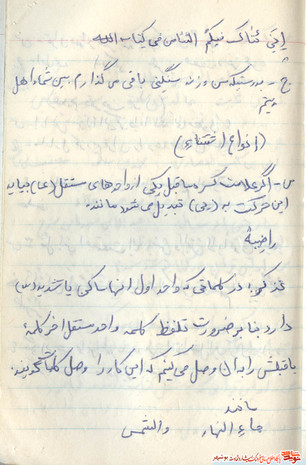 إنی تارک فیکم الثقلین فی کتاب الله
ج - بدرستیکه من وزنه سنگینی باقی می گذارم بین شما اهل
بیتم
(انواع اشتباه)
س - اگر علامت کسره ما قبل یکی از واحدهای مستقل (ها) بیاید
این حرکت به (ی) تبدیل می شود مانند:
راضیة
تذکر: در کلماتی که واحد اول آنها ساکن یا تشدید (س)
دارد بنا بر ضرورت تلفظ کلمه واحد مستقل آخر کلمه
ماقبلش را بدان وصل می کنیم که این کار را وصل کلمات گویند.
مانند
جاء النهار والشمس